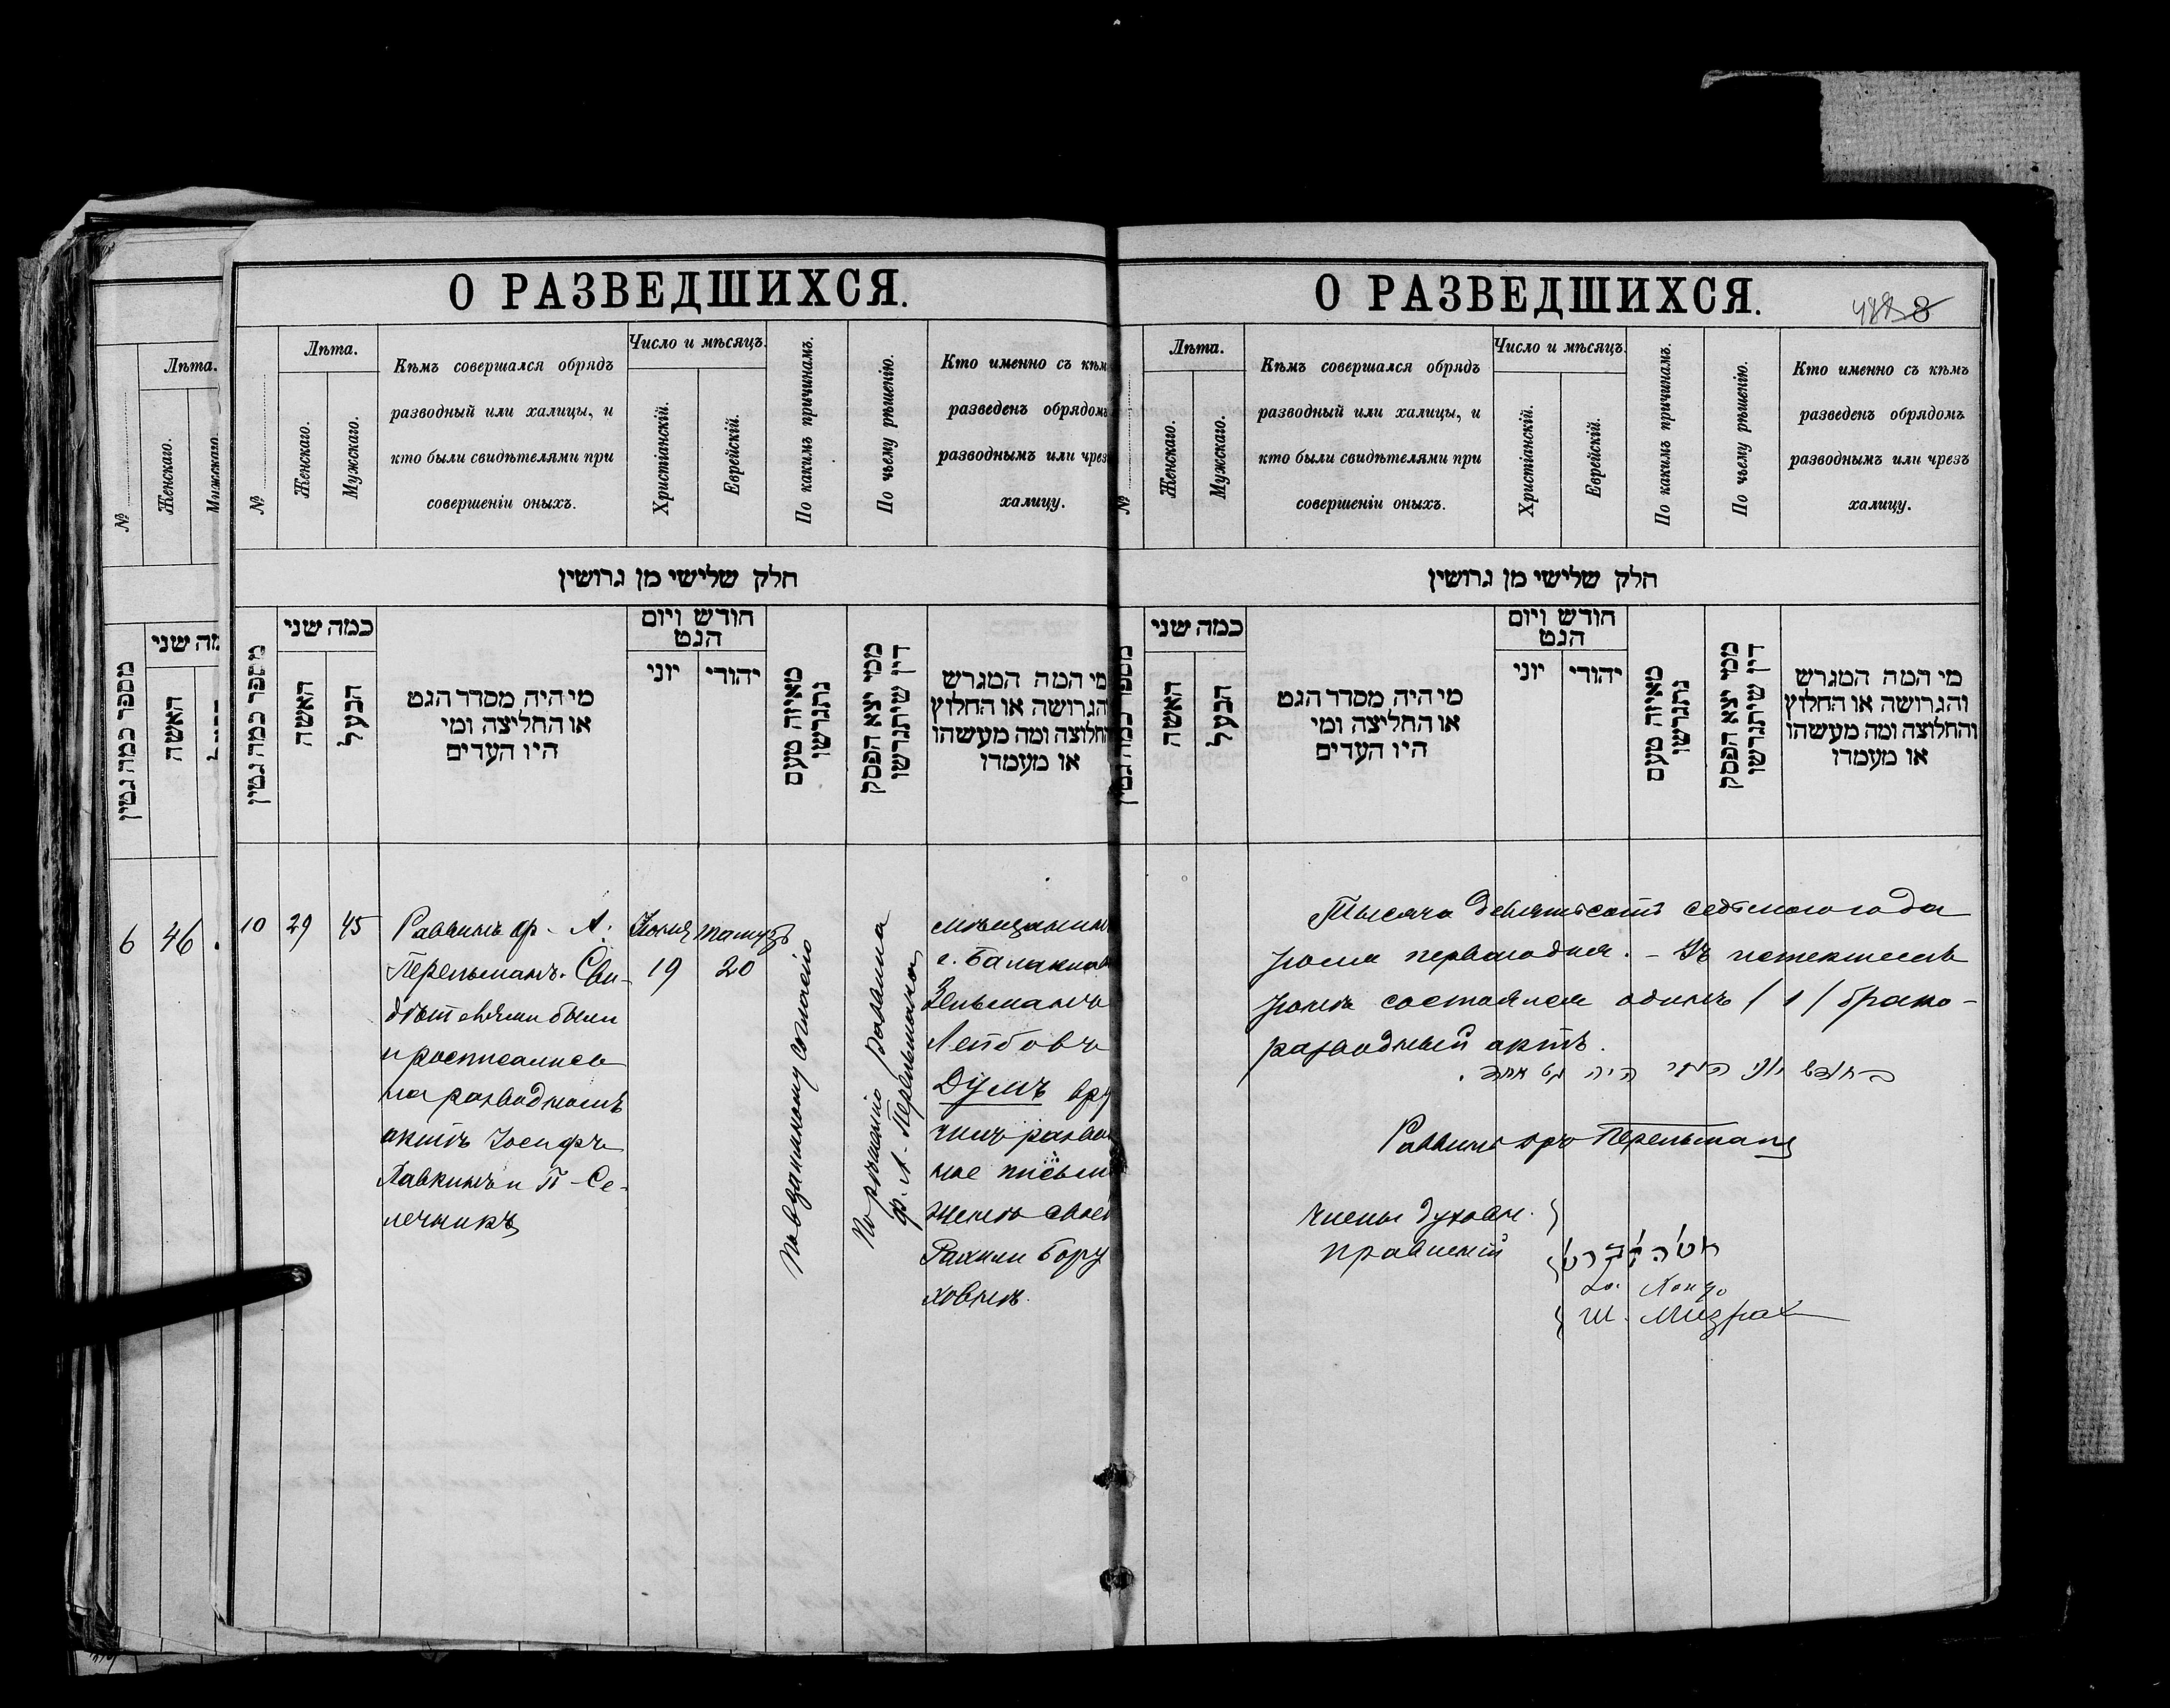 О РАЗВЕДШИХСЯ.
№
Лѣта.
Женскаго.
Мужскаго.
Кѣмъ совершался обрядъ
разводный или халицы, и
кто были свидѣтелями при
совершеніи оныхъ.
Число и мѣсяцъ.
Христіанскій.
Еврейскій.
По какимъ причинамъ.
По чьему рѣшенію.
Кто именно съ кѣм
разведенъ обрядомъ
разводнымъ или чрез
халицу.
חלק שלישי מן גרושין
מספר כמה גטין
כמה שני
האשה
הבעל
מי היה מסדר הגט
או החליצה ומי
היו העדים
חודש ויום
הגט
יוני
יהודי
מאיזה טעם
נתגרשו
ממי יצא הפסק
דין שיתגרשו
מי המה המגרש
והגרושה או החלוץ
והחלוצה ומה מעשהו
או מעמדו
10
29
45
Раввинъ др. А.
Перельманъ. Сви-
дѣтелями были
и росписались
на разводномъ
актѣ Іосифъ
Хавкинъ и П. Се-
лечникъ
Іюня
19
Тамузъ
20
По взаимному согласію
По рѣшенію Раввина
др. А. Перельмана
мѣщанинъ
г. Балаклав
Зельманъ
Лейбовъ
Думъ вру
чилъ разво
ное письм
женѣ своей
Рахили Бору
ховнѣ.
Лѣта.
№
Женскаго.
מה שני
מספר כמה גטין
האשה
6
46
О РАЗВЕДШИХСЯ.
8
№
Лѣта.
Женскаго.
Мужскаго.
Кѣмъ совершался обрядъ
разводный или халицы, и
кто были свидѣтелями при
совершеніи оныхъ.
Число и мѣсяцъ.
Христіанскій.
Еврейскій.
По какимъ причинамъ.
По чьему рѣшенію.
Кто именно съ кѣмъ
разведенъ обрядомъ
разводнымъ или чрезъ
халицу.
חלק שלישי מן גרושין
כמה שני
האשה
הבעל
מי היה מסדר הגט
או החליצה ומי
היו העדים
חודש ויום
הגט
יוני
יהודי
מאיזה טעם
נתגרשו
ממי יצא הפסק
דין שיתגרשו
מי המה המגרש
והגרושה או החלוץ
והחלוצה ומה מעשהו
או מעמדו
Тысяча девятьсотъ седьмого года
іюля перваго дня. – Въ истекшемъ
іюнѣ состоялся одинъ /1/ брако-
разводный актъ.
היה גט אחד.
Раввинъ дръ Перельманъ
Члены духовн.
правленій
Ш. Мизрах